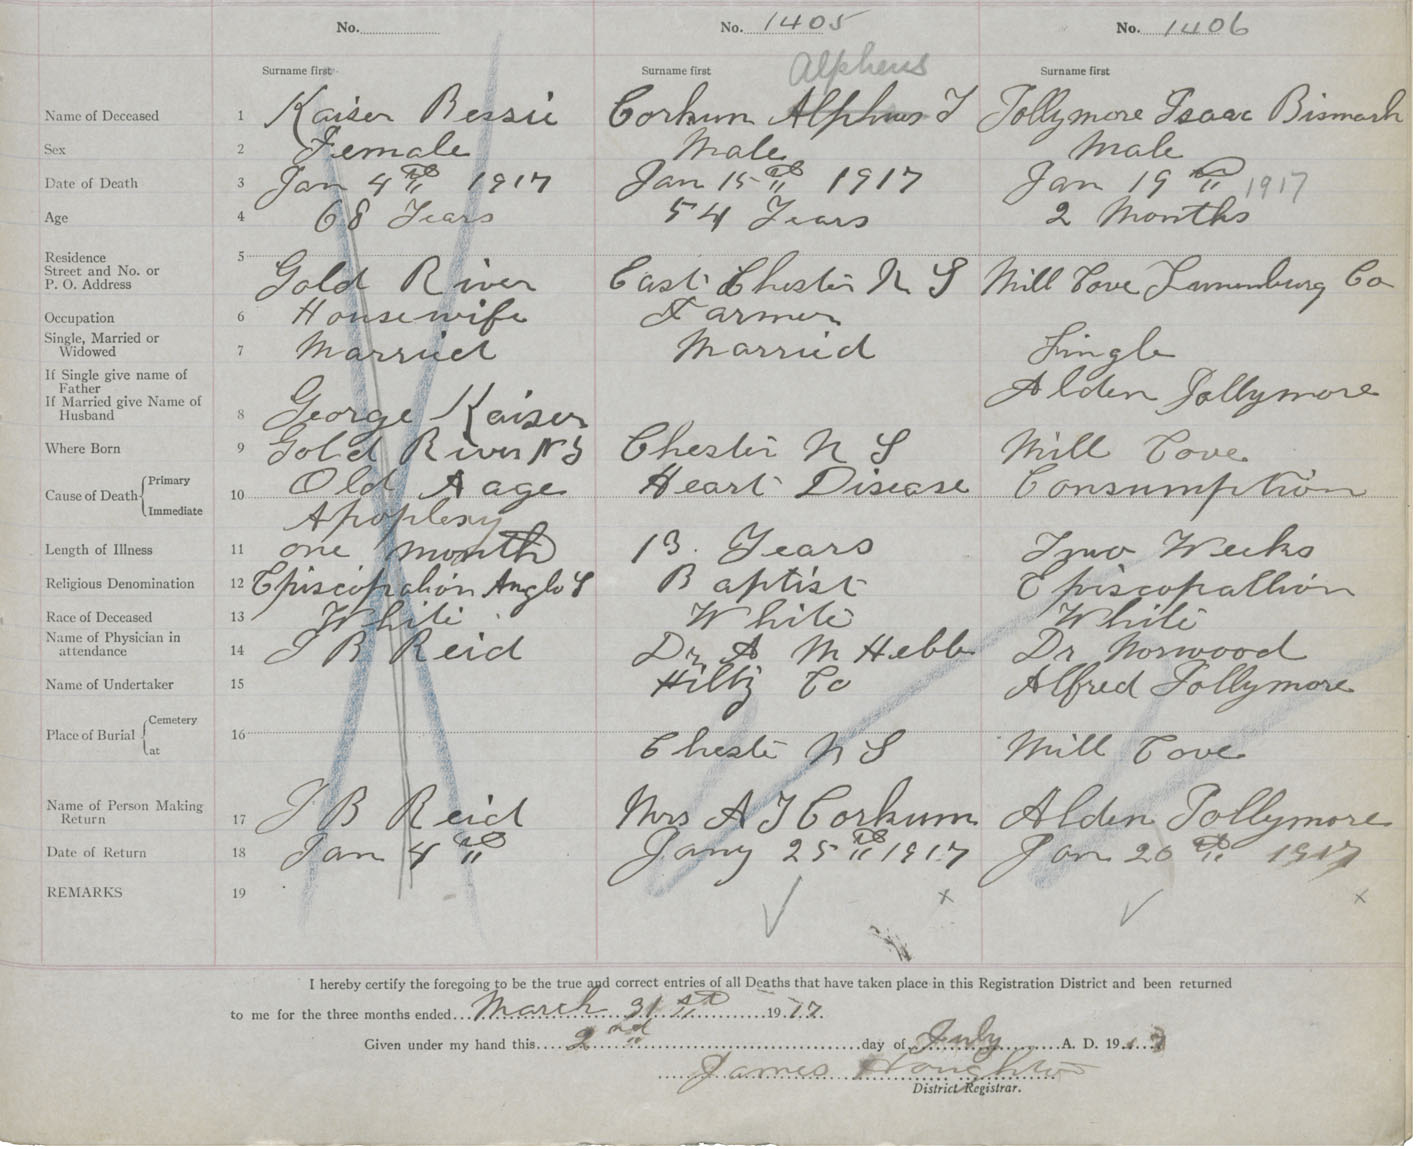 No. No. 1405 No. 1406
Alpheus
Surname first Surname first Surname first
Name of Deceased 1 Kaiser Bessie Corkum Alpheus T Jollymore Isaac Bismark
Sex 2 Female Male Male
Date of Death 3 Jan 4th 1917 Jan 15th 1917 Jan 19th 1917
Age 4 68 Years 54 Years 2 Months
Residence
Street and No. or
P. O. Address 5 Gold River East Chester N S Mill Cove Lunenburg Co
Occupation 6 Housewife Farmer
Single, Married or
Widowed 7 Married Married Single
If Single give name of
Father Alden Jollymore
If Married give Name of
Husband 8 George Kaiser
Where Born 9 Gold River N S Chester N S Mill Cove
Cause of Death Primary 10 Old Aage Heart Disease Consumption
Immediate Apoplexy
Length of Illness 11 one month 13. Years Two Weeks
Religious Denomination 12 Episcopalion Anglo S Baptist Episcopallion
Race of Deceased 13 White White White
Name of Physician in
attendance 14 J B Reid Dr A M Hebb Dr Norwood
Name of Undertaker 15 Hiltz Co Alfred Jollymore
Place of Burial Cemetery 16
at Chester N S Mill Cove
Name of Person Making
Return 17 J B Reid Mrs A T Corkum Alden Jollymore
Date of Return 18 Jan 4th Jany 25th 1917 Jan 20th 1917
REMARKS 19
I hereby certify the foregoing to be the true and correct entries of all Deaths that have taken place in this Registration District and been returned
to me for the three months ended March 31st 1917
Given under my hand this 2nd day of July A. D. 1917
James Houghton
District Registrar.